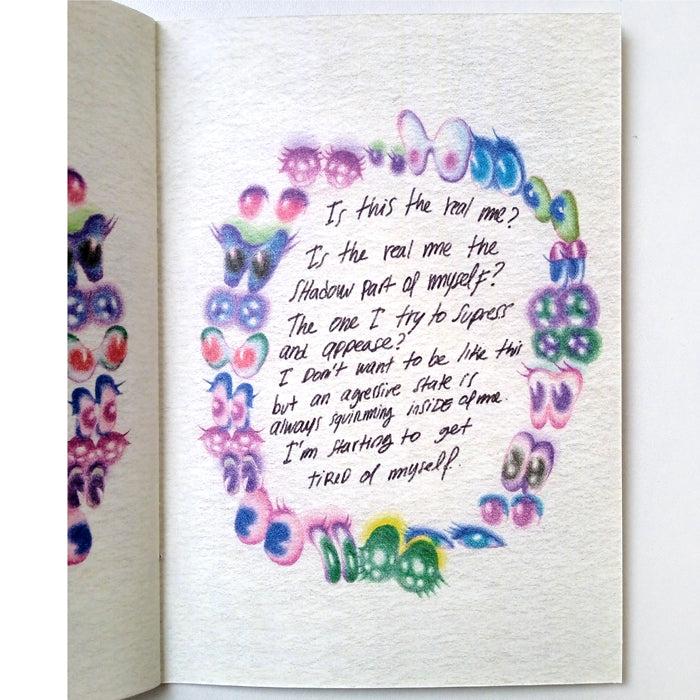 Is this the real me?
Is the real me the
shadow part of myself?
The one I try to supress
and appease?
I Don't want to be like this
but an agressive state is
always squirming inside of me.
I'm starting to get
tired of myself.